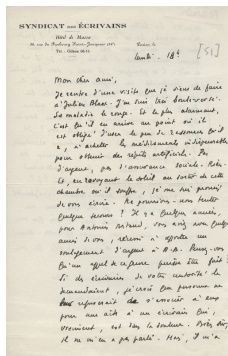 SYNDICAT DES ÉCRIVAINS
Hôtel de Massa
38, rue du Faubourg Saint-Jacques (14e)
Tél. : Odéon
lundi - 18h [51]
Mon cher ami,
Je rentre d'une visite que je viens de faire
à Julien Blanc. J'en suis très bouleversé.
Sa maladie le ronge. Et le plus alarmant,
c'est qu'il en arrive au point où il
est obligé d'user le peu de ressources qu'il
a, à acheter les médicaments indispensables
pour obtenir des répits artificiels. Pas
d'argent, pas d'assurance sociale. Rien.
Et, en revoyant le soleil au sortir de cette
chambre où il souffre, je me suis promis
de vous écrire. Ne pourrions-nous tenter
quelque secours ? Il y a quelques années,
pour Antonin Artaud, vous aviez avec quelques
amis à vous, réussi à apporter un
soulagement d'argent à A.A. Pensez-vous
qu'un appel de ce genre puisse être fait ?
Si des écrivains de votre autorité le
demandaient, je crois que personne ne
refuserait de s'associer à eux
pour une aide à un écrivain qui,
vraiment, est dans la douleur. Bien sûr,
il ne m'en a pas parlé. Mais, j'en ai